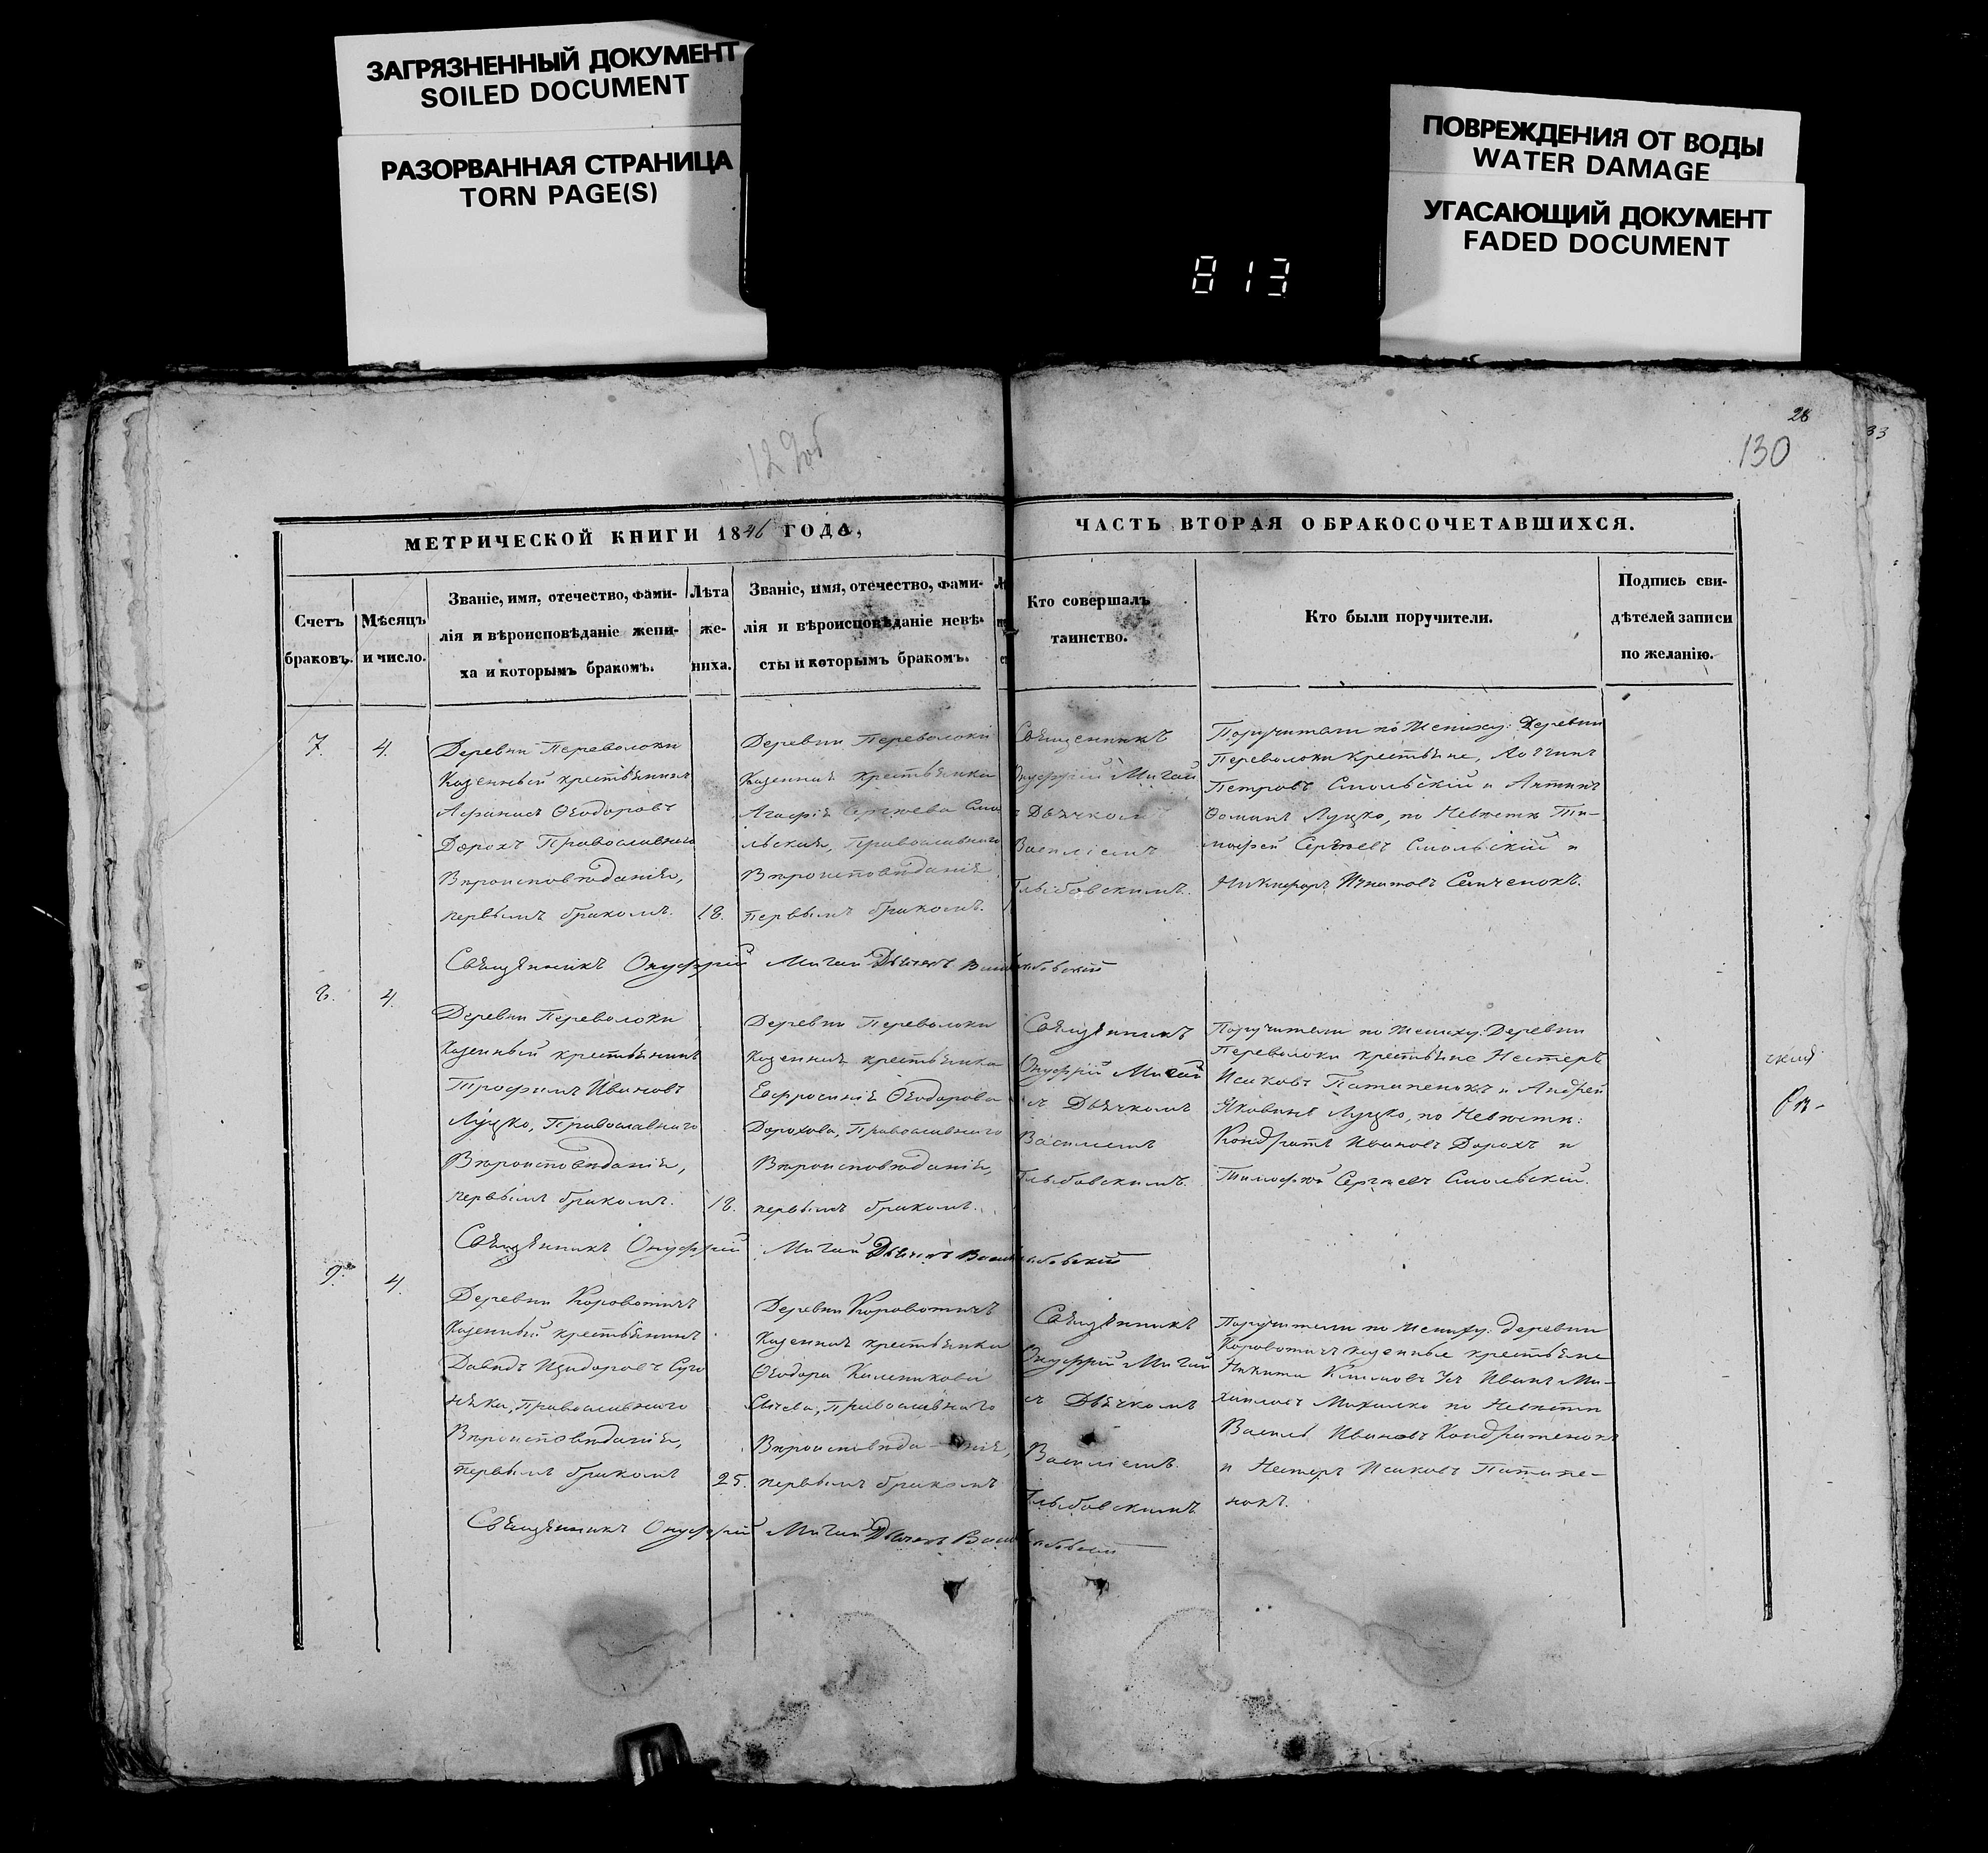 ЗАГРЯЗНЕННЫЙ ДОКУМЕНТ
SOILED DOCUMENT
РАЗОРВАННАЯ СТРАНИЦА
TORN PAGE(S)
ПОВРЕЖДЕНИЯ ОТ ВОДЫ
WATER DAMAGE
УГАСАЮЩИЙ ДОКУМЕНТ
FADED DOCUMENT
813
28
33
130
129об
МЕТРИЧЕСКОЙ КНИГИ 1846 ГОДА,
ЧАСТЬ ВТОРАЯ О БРАКОСОЧЕТАВШИХСЯ.
Счетъ
браковъ.
Мѣсяцъ
и число.
Званіе, имя, отечество, фами-
лія и вѣроисповѣданіе жени-
ха и которымъ бракомъ.
Лѣта
же-
ниха.
Званіе, имя, отечество, фами-
лія и вѣроисповѣданіе невѣ-
сты и которымъ бракомъ.
Кто совершалъ
таинство.
Кто были поручители.
Подпись сви-
дѣтелей записи
по желанію.
7.
4.
Деревни Переволоки
Казенный крестьянинъ
Афанасъ Ѳеодоровъ
Дорохъ Православнаго
Вѣроисповѣданія,
первымъ бракомъ.
18.
Деревни Переволоки
Казенная крестьянка
Агафія Сергѣева Смо
льская, Православнаго
Вѣроисповѣданія
первымъ бракомъ.
Священникъ
Онуфрій Мигай
Дьячкомъ
Василіемъ
Глыбовскимъ.
Поручители по Жениху: Деревни
Переволоки Крестьяне,
Петровъ Смольскій и
Ѳоминъ Луцко, по Невѣсти Ти-
мофей Сергѣевъ Смольскій и
Никифоръ
Священникъ Онуфрій Мигай Дьячекъ
8.
4.
Деревни Переволоки
Казенный крестьянинъ
Трофимъ Ивановъ
Луцко, Православнаго
Вѣроисповѣданія,
первымъ бракомъ.
18.
Деревни Переволоки
Казенная крестьянка
Евфросинія Ѳеодорова
Дорохова, Православнаго
Вѣроисповѣданія,
первымъ бракомъ.
Священникъ
Онуфрій Мигай
съ Дьячкомъ
Василіемъ
Глыбовскимъ.
Поручители по Жениху: Деревни
Переволоки крестьяне Нестеръ
Исаковъ Потапенокъ и Андрей
Яковинъ Луцко, по Невѣсти:
Кондратъ Ивановъ Дорохъ и
Тимофей Сергѣевъ Смольскій.
Священникъ Онуфрій Мигай Дьячекъ
9.
4.
Деревни Короватичъ
Казенный крестьянинъ
Давидъ Исидоровъ
Православнаго
Вѣроисповѣданія,
первымъ бракомъ
25.
Деревни Короватичъ
Казенная крестьянка
Ѳеодора
Православнаго
Вѣроисповѣда-нія,
первымъ бракомъ
Священникъ
Онуфрій Мигай
съ Дьячкомъ
Василіемъ.
Глыбовскимъ
Поручители по Жениху: деревни
Короватичъ казенные крестьяне
Никита Иванъ Ми-
хайловъ Михалко по Невѣсти
Василь Ивановъ Кондратенокъ
и Нестеръ Исаковъ Потапе-
нокъ.
Священникъ Онуфрій Мигай Дьячекъ